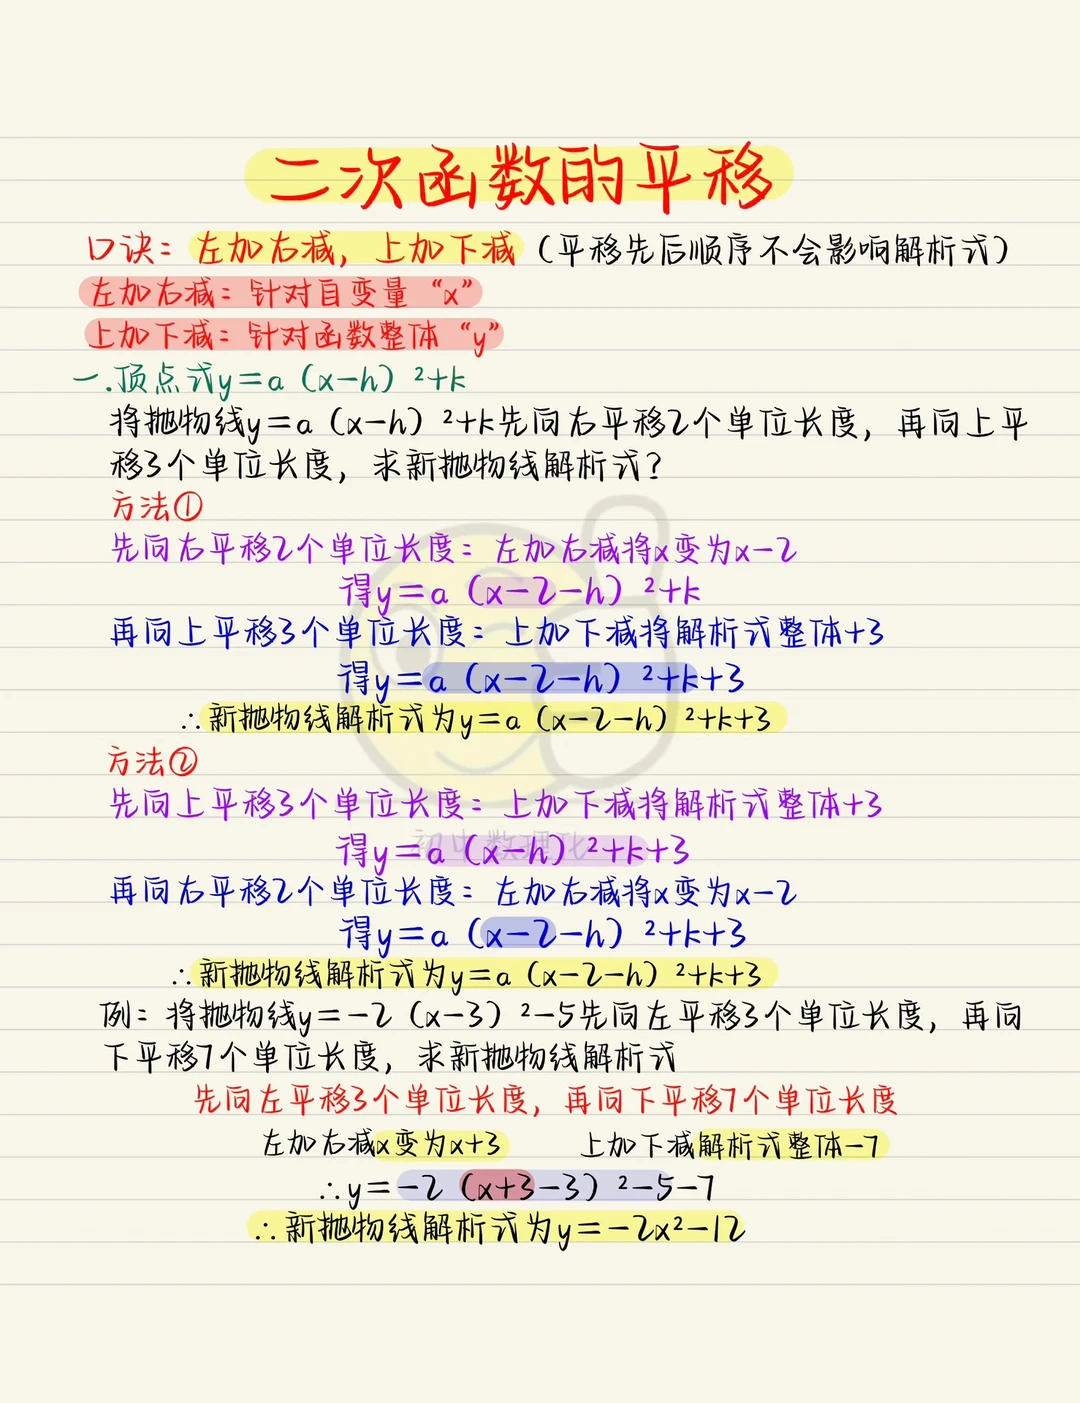 二次函数的平移
口诀：左加右减，上加下减（平移先后顺序不会影响解析式）
左加右减：针对自变量“x”
上加下减：针对函数整体“y”
一.顶点式y=a（x-h）²+k
将抛物线y=a（x-h）²+k先向右平移2个单位长度，再向上平
移3个单位长度，求新抛物线解析式？
方法①
先向右平移2个单位长度：左加右减将x变为x-2
得y=a（x-2-h）²+k
再向上平移3个单位长度：上加下减将解析式整体+3
得y=a（x-2-h）²+k+3
∴新抛物线解析式为y=a（x-2-h）²+k+3
方法②
先向上平移3个单位长度：上加下减将解析式整体+3
初中数理化
得y=a（x-h）²+k+3
再向右平移2个单位长度：左加右减将x变为x-2
得y=a（x-2-h）²+k+3
∴新抛物线解析式为y=a（x-2-h）²+k+3
例：将抛物线y=-2（x-3）²-5先向左平移3个单位长度，再向
下平移7个单位长度，求新抛物线解析式
先向左平移3个单位长度，再向下平移7个单位长度
左加右减x变为x+3 上加下减解析式整体-7
∴y=-2（x+3-3）²-5-7
∴新抛物线解析式为y=-2x²-12